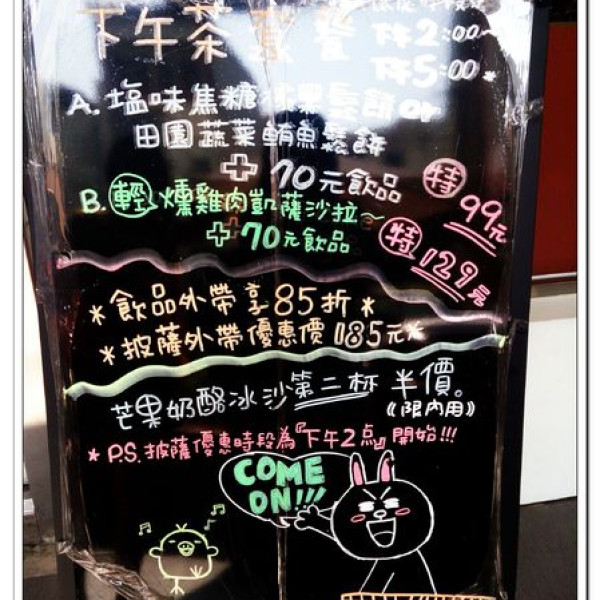 下午茶套餐
下午2:00~
下午5:00*
A. 塩味焦糖冰果鬆餅or
田園蔬菜鮪魚鬆餅
+70元飲品
特 99元
B. 輕 燻雞肉凱薩沙拉~
+70元飲品
特 129元
*飲品外帶享85折*
*披薩外帶優惠價185元*
芒果奶酪冰沙第二杯半價。
《限內用》
*P.S.披薩優惠時段為『下午2点』開始!!!
COME
ON!!!